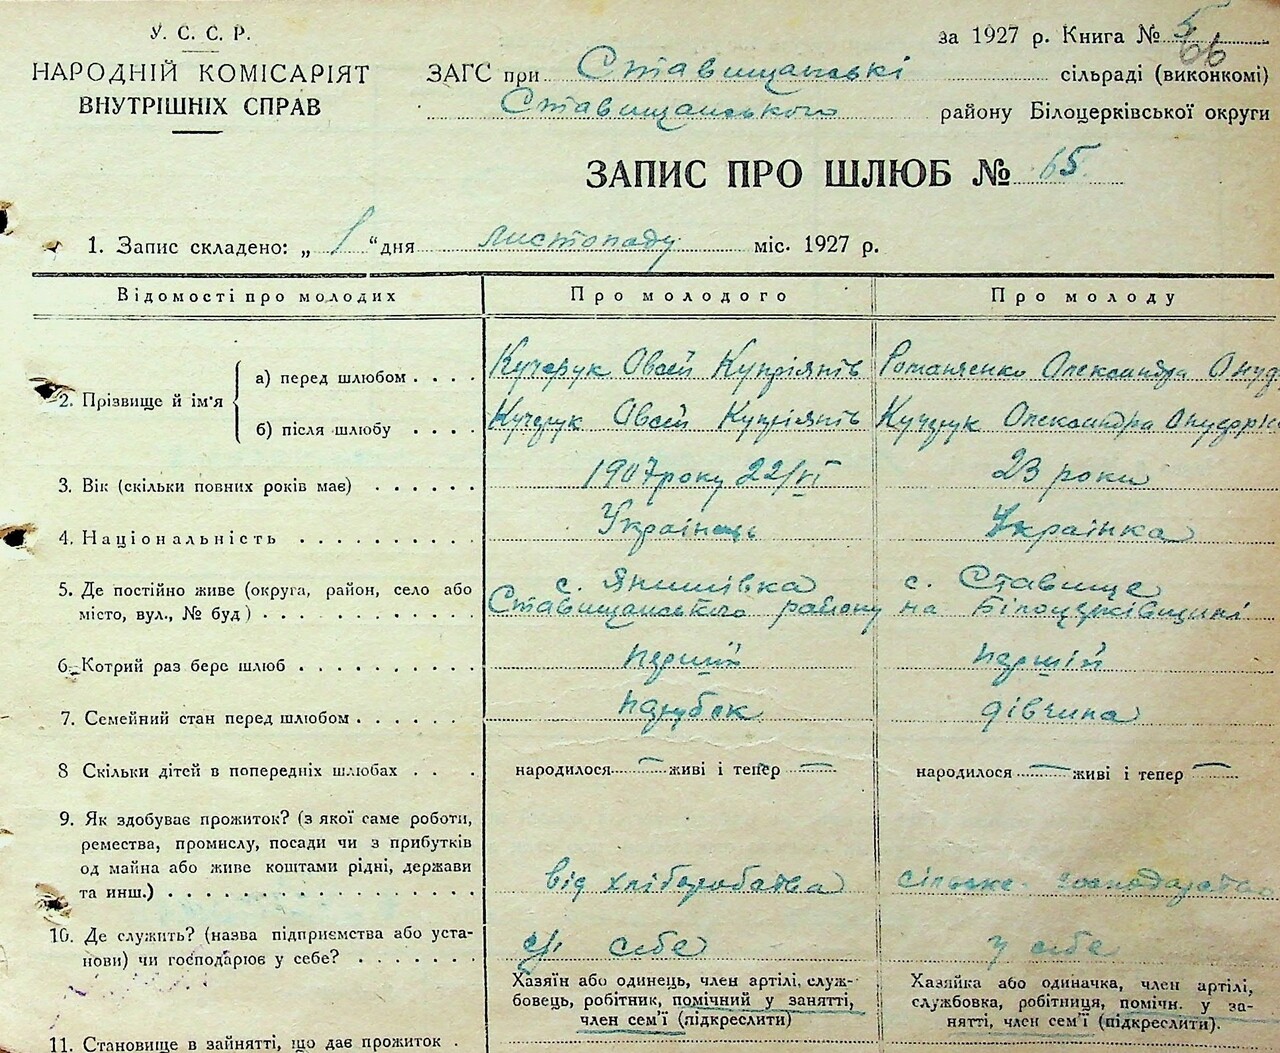 У. С. С. Р.
НАРОДНІЙ КОМІСАРІЯТ
ВНУТРІШНІХ СПРАВ
за 1927 р. Книга № 5
66
ЗАГС при Ставищанські сільраді (виконкомі)
Ставищанського району Білоцерківської округи
ЗАПИС ПРО ШЛЮБ № 65.
1. Запис складено: „ 1 “ дня листопаду міс. 1927 р.
Відомості про молодих Про молодого Про молоду
2. Прізвище й ім'я
а) перед шлюбом . . . . Кучерук Овсей Купріянів Романченко Олександра Онуф
б) після шлюбу . . . . Кучерук Овсей Купріянів Кучерук Олександра Онуфрі
3. Вік (скільки повних років має) . . . . . . 1907 року 22/VI 23 роки
4. Національність . . . . . . . . . . Українець Українка
5. Де постійно живе (округа, район, село або с. Янишівка с. Ставище
місто, вул., № буд) . . . . . . . . . . . Ставищанського району на Білоцерківщині
6. Котрий раз бере шлюб . . . . . . . . . . перший першій
7. Семейний стан перед шлюбом . . . . . . парубок дівчина
8 Скільки дітей в попередніх шлюбах . . . народилося — живі і тепер — народилося — живі і тепер —
9. Як здобуває прожиток? (з якої саме роботи,
ремества, промислу, посади чи з прибутків
од майна або живе коштами рідні, держави
та инш.) . . . . . . . . . . . . . . . . . від хліборобства сільське господарство
10. Де служить? (назва підприємства або уста-
нови) чи господарює у себе? . . . . . . . у себе у себе
Хазяїн або одинець, член артілі, служ-
бовець, робітник, помічний у занятті,
член сем'ї (підкреслити)
Хазяйка або одиначка, член артілі,
службовка, робітниця, помічн. у за-
нятті, член сем'ї (підкреслити).
11. Становище в зайнятті, що дає прожиток .